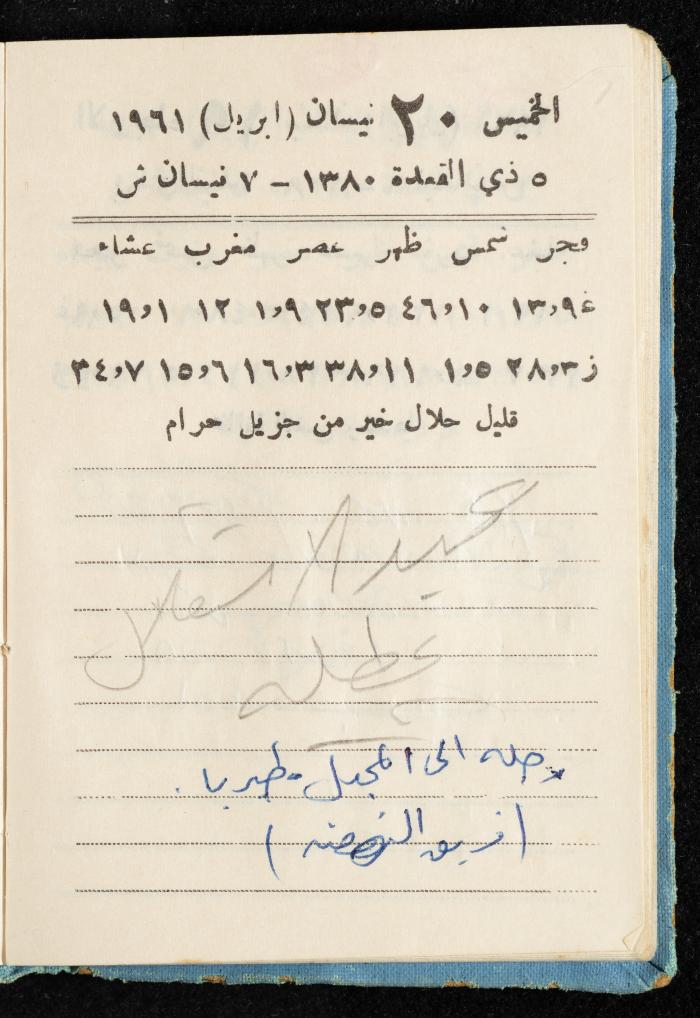 الخميس ٢٠ نيسان (ابريل) ١٩٦١
٥ ذي القعدة ١٣٨٠ – ٧ نيسان ش
فجر شمس ظهر عصر مغرب عشاء
غ ٩٫١٣ ١٠٫٤٦ ٥٫٢٣ ٩٫١ ١٢ ١٫١٩
ز ٣٫٢٨ ٥٫١ ١١٫٣٨ ٣٫١٦ ٦٫١٥ ٧٫٣٤
قليل حلال خير من جزيل حرام
عيد الاستقلال
عطله
رحله الى المجدل - طبريا .
(فريق النهضه)